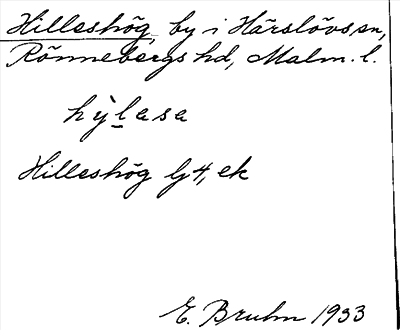 Hilleshög, by i Härslövs sn,
Rönnebergs hd, Malm. l.
hỳlasa
Hilleshög Lj 4, ek
E. Bruhn 1933